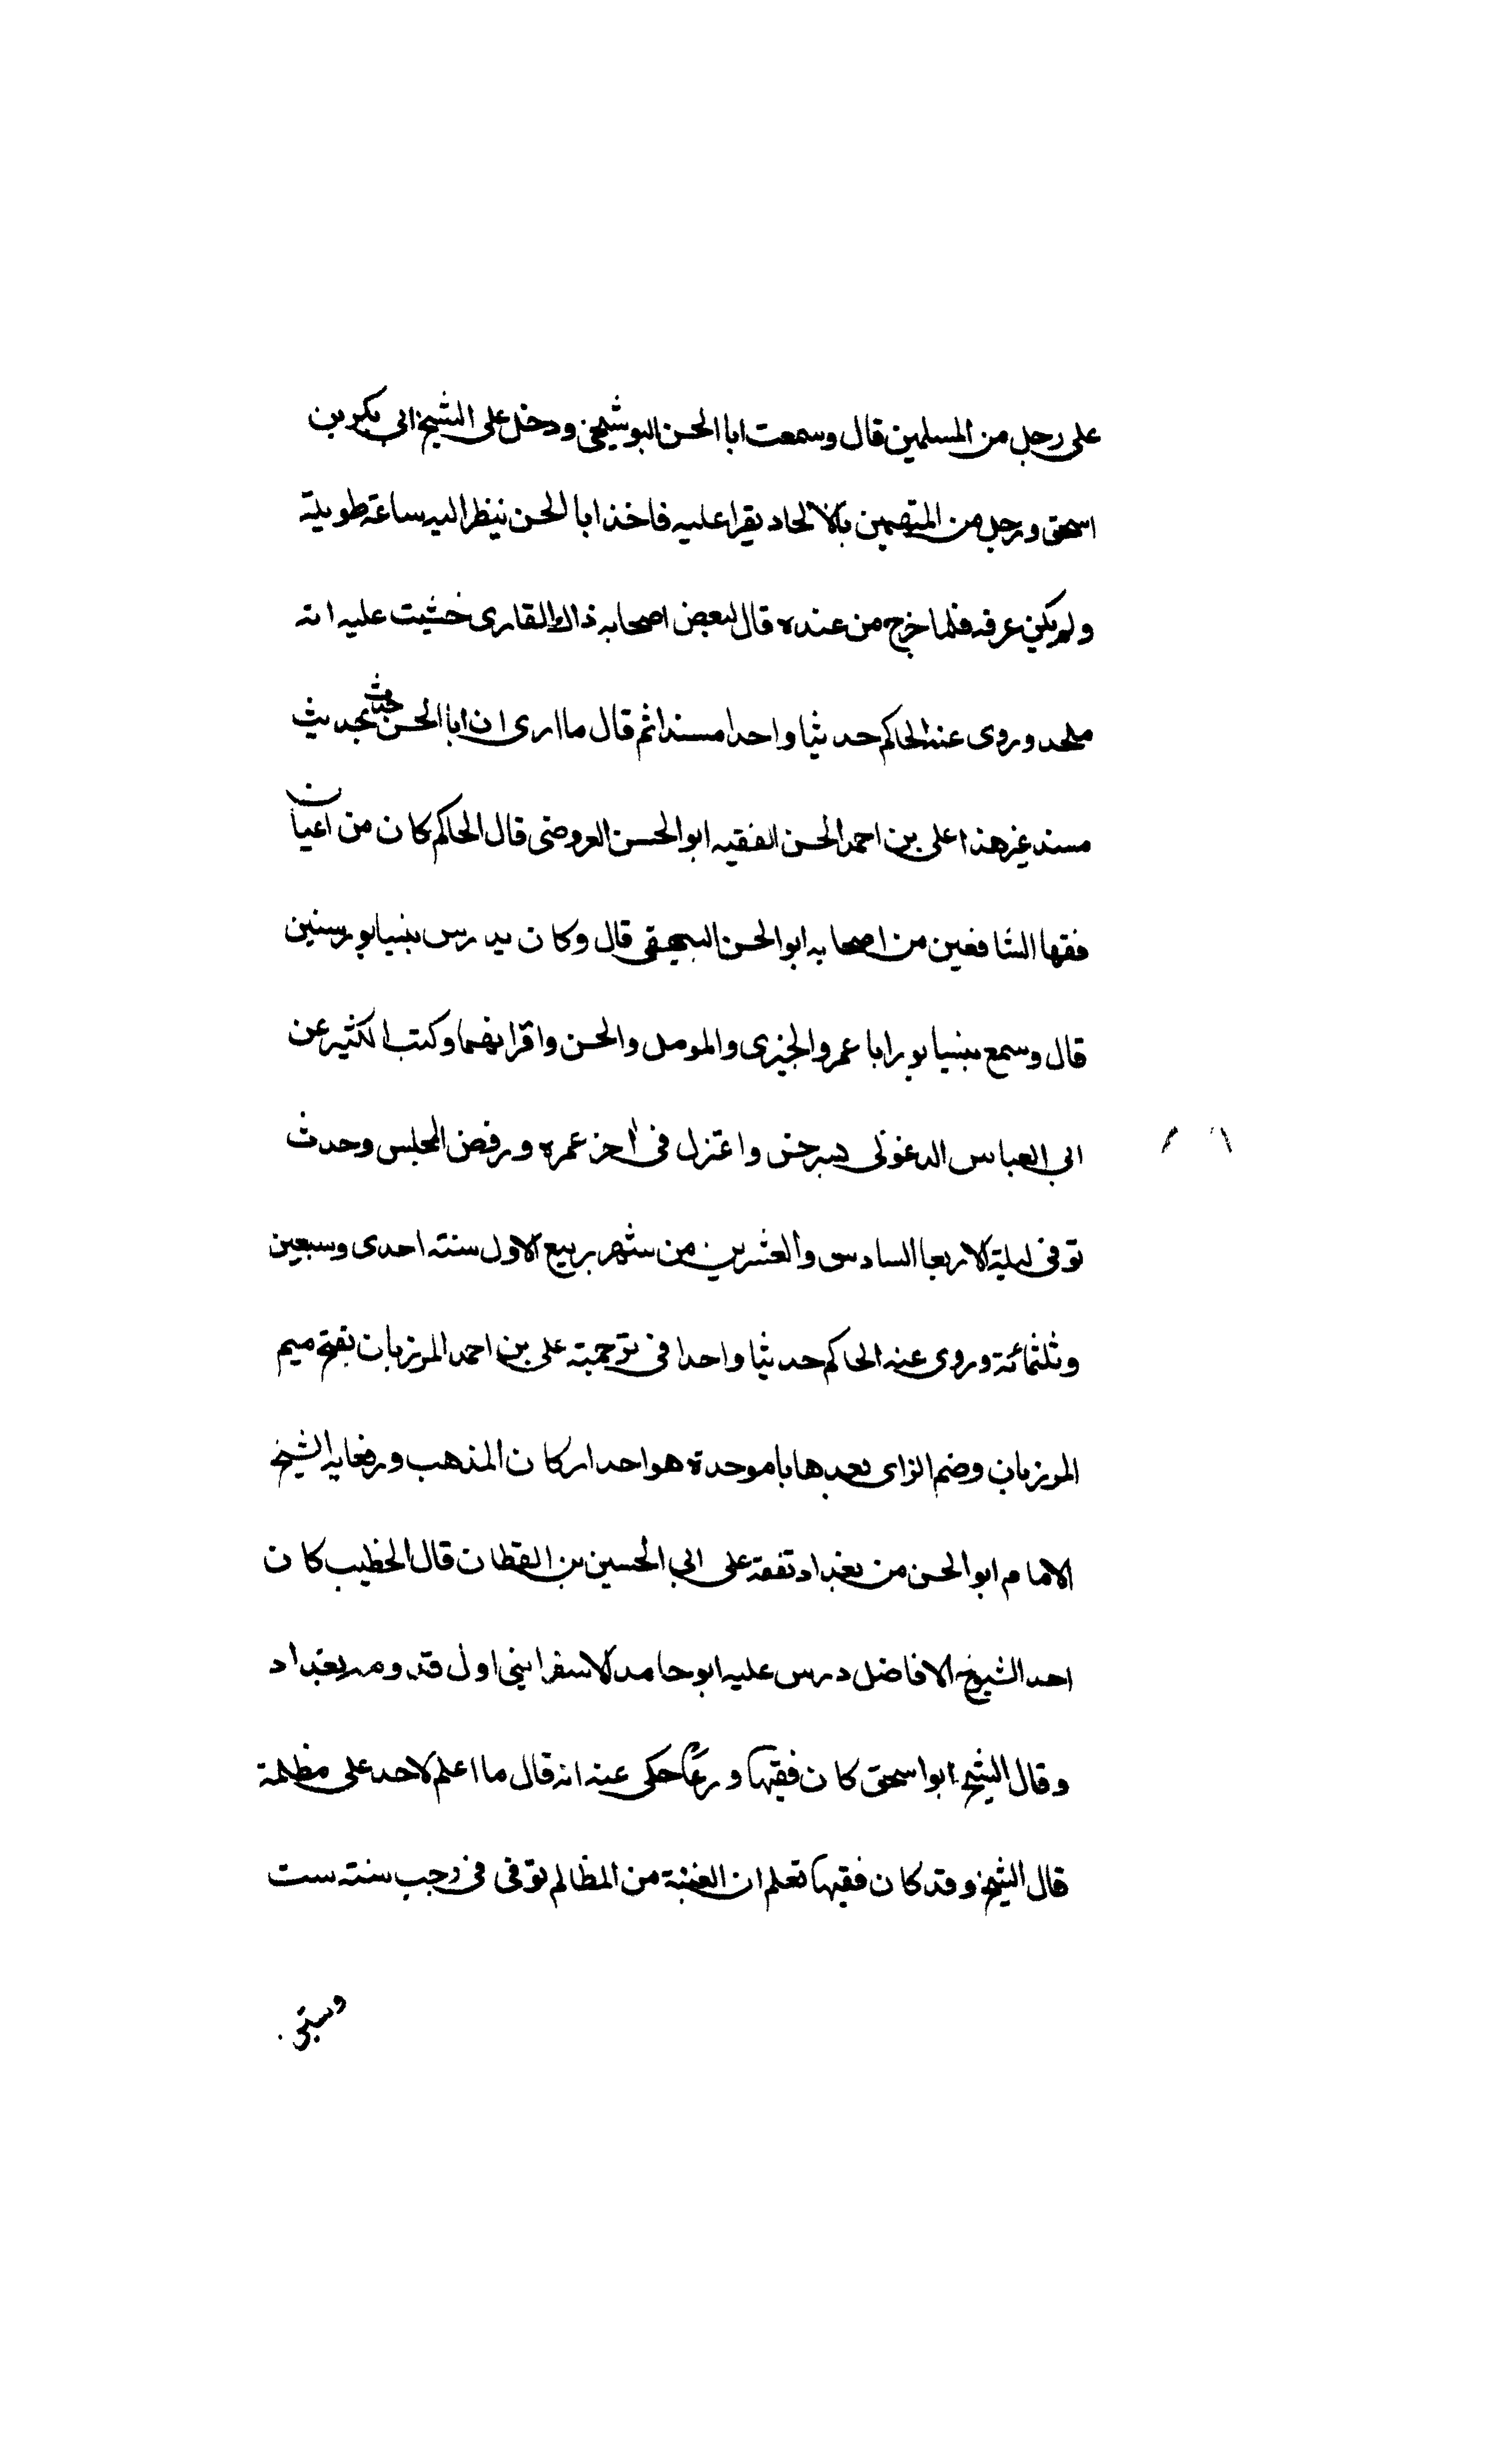 على رجل من المسلمين قال وسمعت ابا الحسن البوشنجى ودخل على الشيخ ابى بكر بن
اسحق ورجل من المتهمين بالالحاد يقرا عليه فاخذ ابا الحسن ينظر اليه ساعة طويلة
ولم يكن عرفه فلما خرج من عنده قال لبعض اصحابه ذاك القارى خشيت عليه انه
ملحد وروى عنه الحاكم حديثا واحدا مسندا ثم قال ما ارى ان ابا الحسن حدث بحديث
مسند غير هذا على بن احمد الحسن الفقيه ابو الحسن العروضى قال الحاكم كان من اعيان
فقها الشافعين من اصحابه ابو الحسن البيهقى قال وكان يدرس بنيسابور سنين
قال وسمع بنيسابور ابا عمرو الجيزى والمومل والحسن واقرانهما وكتب الكثير عن
ابى العباس الدغولى بسرخس واعتزل فى اخر عمره ورفض المجلس وحدث
توفى ليلة الاربعا السادس والعشرين من شهر ربيع الاول سنة احدى وسبعين
وثلثمائة وروى عنه الحاكم حديثا واحدا فى ترجمته على بن احمد المرزبان بفتح ميم
المرزبان وضم الزاى بعدها با موحدة هو احد اركان المذهب ورفعايه الشيخ
الامام ابو الحسن من بغداد تفقه على ابى الحسين بن القطان قال الخطيب كان
احد الشيوخ الافاضل درس عليه ابو حامد الاسفراينى اول قدومه بغداد
وقال الشيخ ابو اسحق كان فقيها ورعًا حكى عنه انه قال ما اعلم لاحد على مظلمة
قال الشيخ وقد كان فقيها تعلم ان الغيبة من المظالم توفى فى رجب سنة ست
وستين